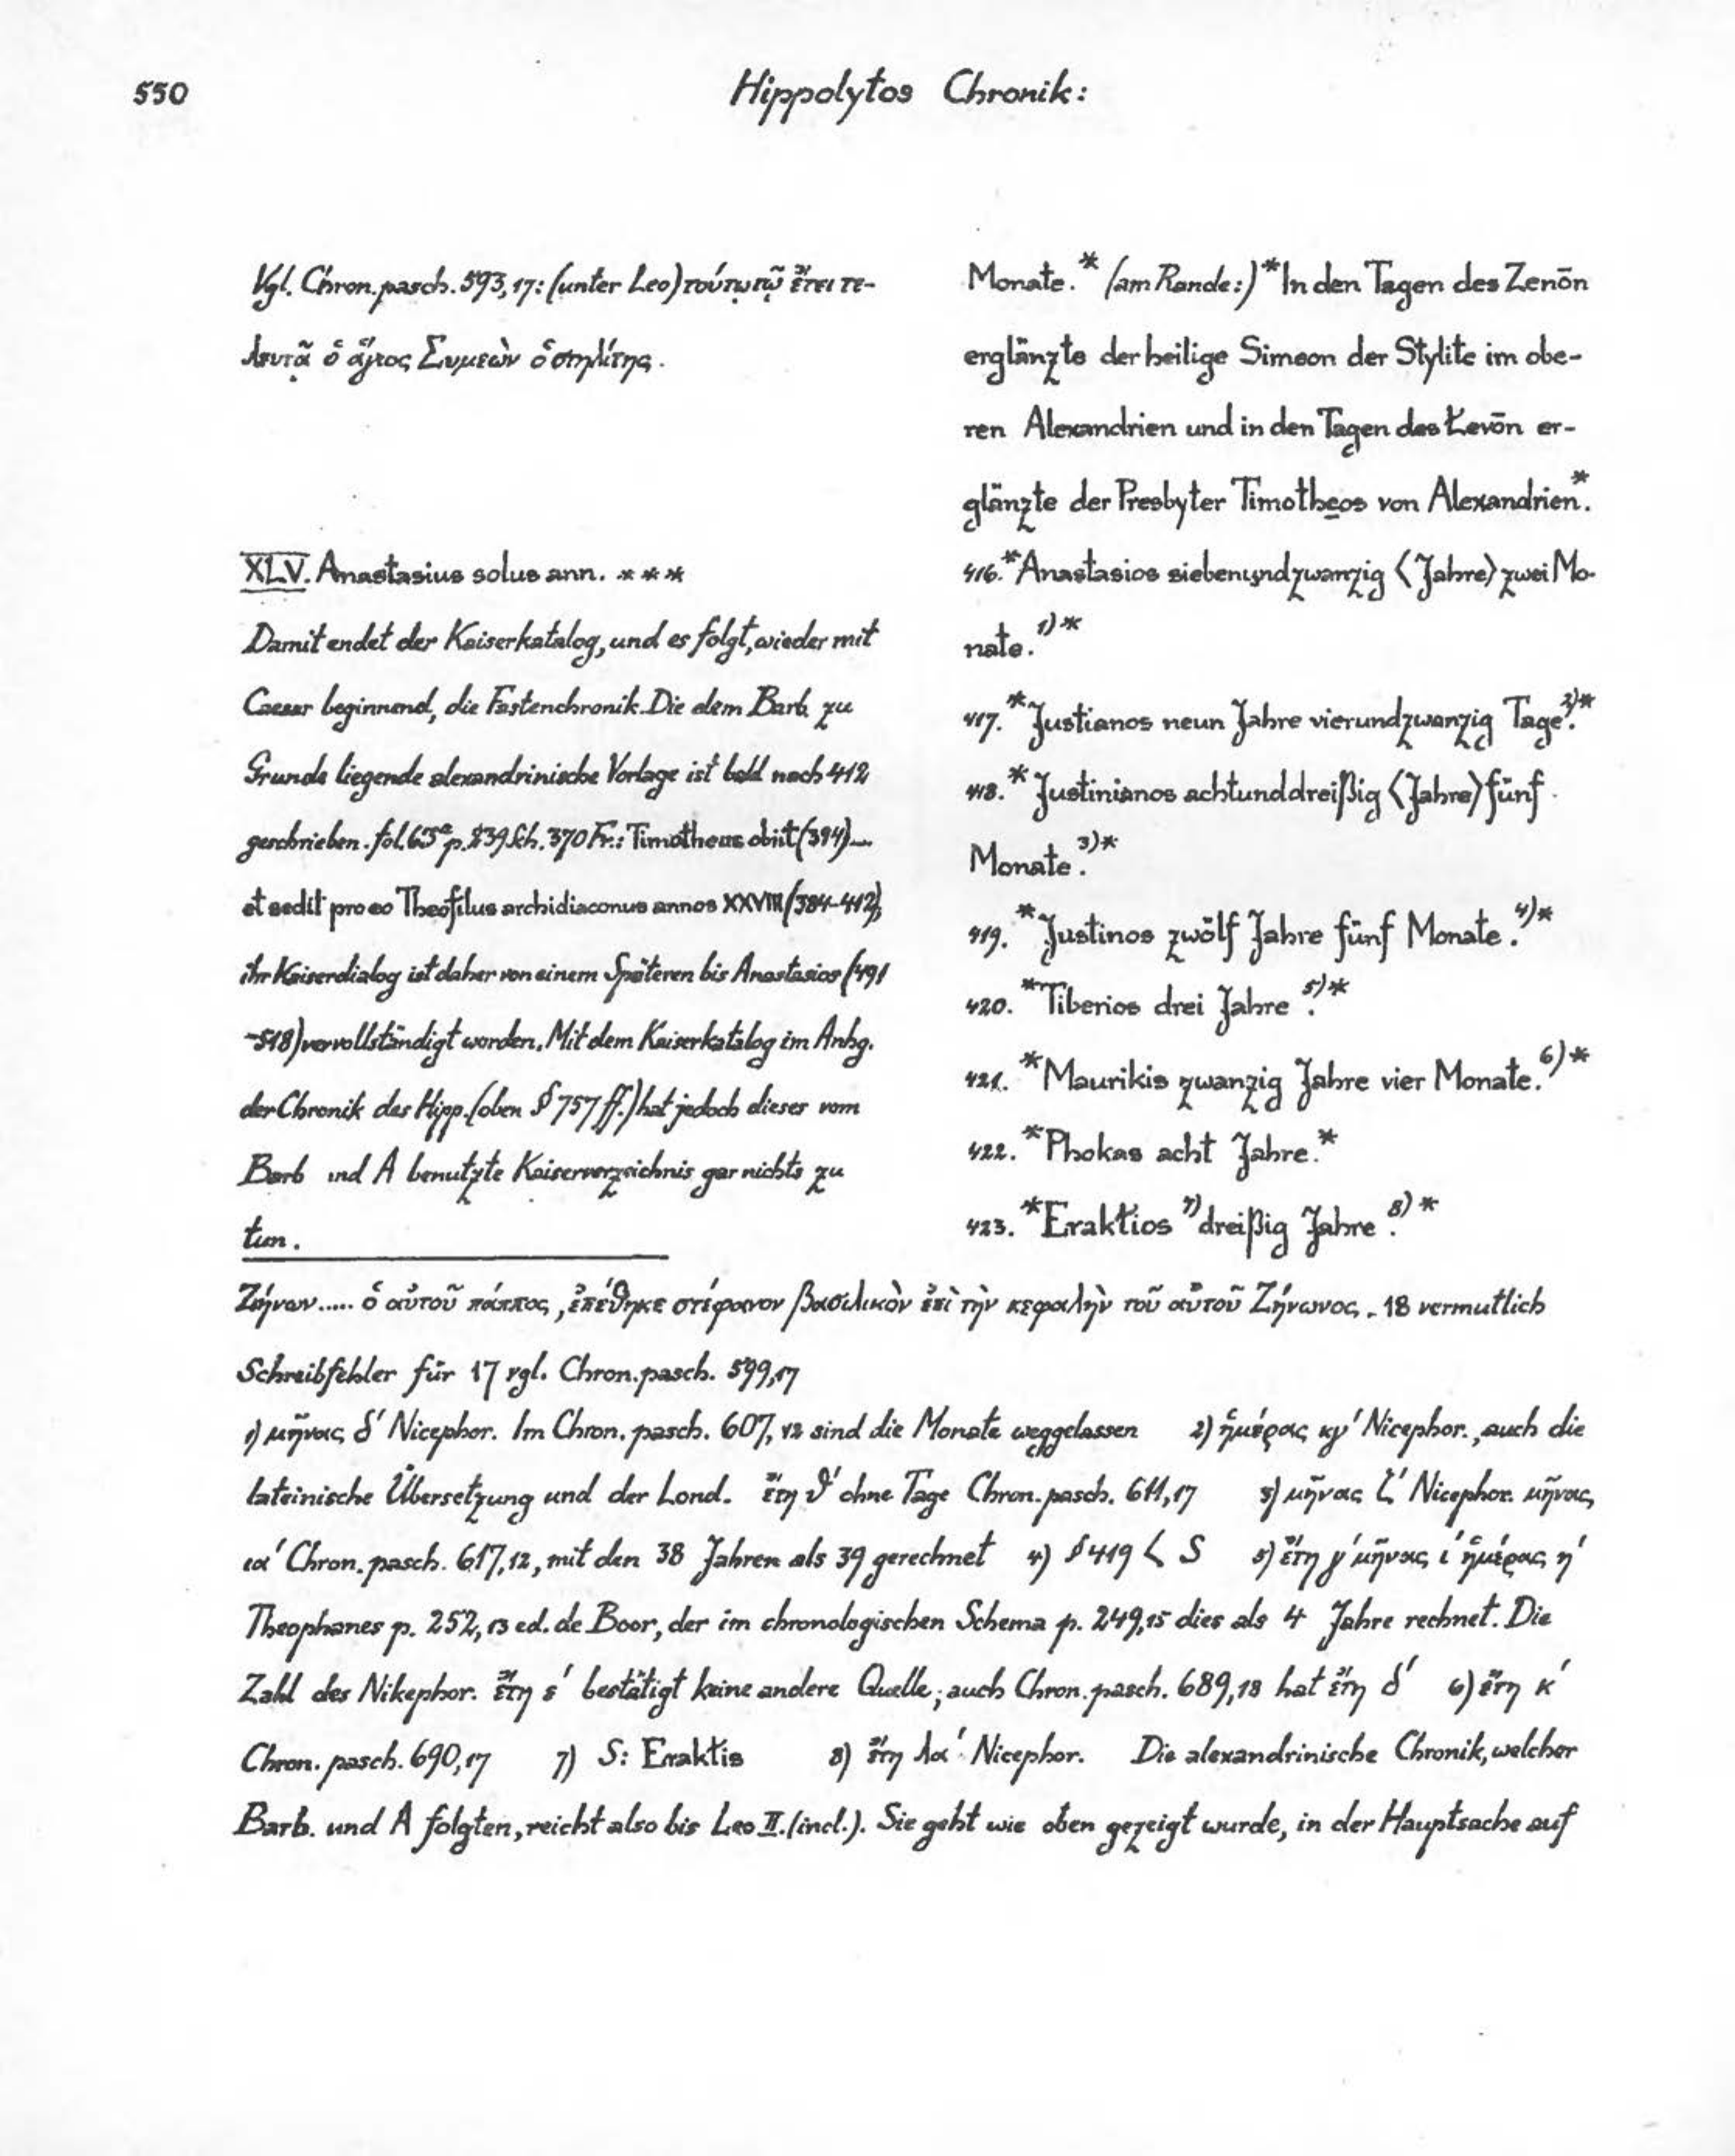 550
Hippolytos Chronik:
Vgl. Chron. pasch. 593,17: (unter Leo) τούτῳ τῷ ἔτει τε-
λευτᾷ ὁ ἅγιος Συμεὼν ὁ στηλίτης.
XLV. Anastasius solus ann. * * *
Damit endet der Kaiserkatalog, und es folgt, wieder mit
Caesar beginnend, die Fastenchronik. Die dem Barb. zu
Grunde liegende alexandrinische Vorlage ist bald nach 412
geschrieben. fol. 63ª p. 239 Sch. 370 Fr.: Timotheus obiit (394) ...
et sedit pro eo Theofilus archidiaconus annos XXVIII (384-412),
ihr Kaiserdialog ist daher von einem Späteren bis Anastasios (491
-518) vervollständigt worden. Mit dem Kaiserkatalog im Anhg.
der Chronik des Hipp. (oben § 757 ff.) hat jedoch dieses vom
Barb und A benutzte Kaiserverzeichnis gar nichts zu
tun.
Monate.* (am Rande:) *In den Tagen des Zenōn
erglänzte der heilige Simeon der Stylite im obe-
ren Alexandrien und in den Tagen des Łevōn er-
glänzte der Presbyter Timotheos von Alexandrien.*
416. *Anastasios siebenundzwanzig <Jahre> zwei Mo-
nate.1)*
417. *Justianos neun Jahre vierundzwanzig Tage.2)*
418. *Justinianos achtunddreißig <Jahre> fünf
Monate.3)*
419. *Justinos zwölf Jahre fünf Monate.4)*
420. *Tiberios drei Jahre.5)*
421. *Maurikis zwanzig Jahre vier Monate.6)*
422. *Phokas acht Jahre.*
423. *Erakłios 7) dreißig Jahre.8)*
Ζήνων ..... ὁ αὐτοῦ πάππος, ἐπέθηκε στέφανον βασιλικὸν ἐπὶ τὴν κεφαλὴν τοῦ αὐτοῦ Ζήνωνος. - 18 vermutlich
Schreibfehler für 17 vgl. Chron. pasch. 599,17
1) μῆνας δ' Nicephor. Im Chron. pasch. 607,12 sind die Monate weggelassen 2) ἡμέρας κγ' Nicephor., auch die
lateinische Übersetzung und der Lond. ἔτη θ' ohne Tage Chron. pasch. 611,17 3) μῆνας ζ' Nicephor. μῆνας
ια' Chron. pasch. 617,12, mit den 38 Jahren als 39 gerechnet 4) § 419 < S 5) ἔτη γ' μῆνας ι' ἡμέρας η'
Theophanes p. 252,13 ed. de Boor, der im chronologischen Schema p. 249,15 dies als 4 Jahre rechnet. Die
Zahl des Nikephor. ἔτη ε' bestätigt keine andere Quelle; auch Chron. pasch. 689,18 hat ἔτη δ' 6) ἔτη κ'
Chron. pasch. 690,17 7) S: Erakłis 8) ἔτη λα' Nicephor. Die alexandrinische Chronik, welcher
Barb. und A folgten, reicht also bis Leo II. (incl.). Sie geht wie oben gezeigt wurde, in der Hauptsache auf